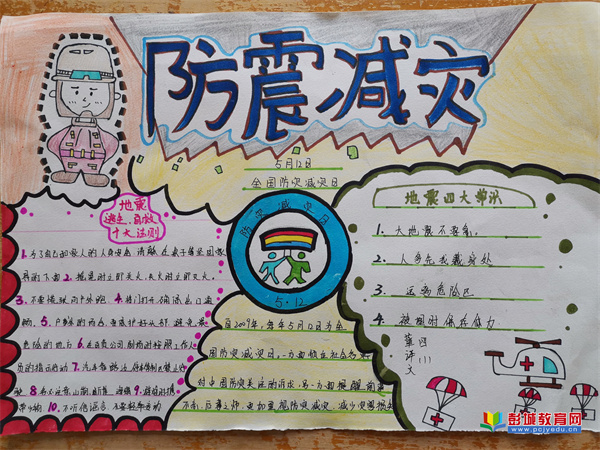 防震减灾
5月12日
全国防灾减灾日
地震
逃生、自救
十大法则
1.为了自己和家人的人身安急请躲在桌子等坚固家
具的下面 2.摇晃时立即关火,失火时立即灭火。
3.不要慌张向户外跑 4.将门打开,确保出口
5.户外的场合,要保护好头部,避免
危险的地方 6.在百货公司、剧场时按照工作人
员的指示行动 7.汽车靠路边
8.务必注意山崩、断崖
9.避难时
10.不听信谣言,不要轻举妄动
防灾减灾日
5·12
自2009年,每年5月12日为全
国防灾减灾日,一方面顺应社会各界
对中国防灾关注的诉求,另一方面提醒
更加重视防灾减灾,减少灾害损失
地震四大常识
1.大地震不要急
2.人多先找藏身处
3.远离危险区
4.被困时保存体力
彭城教育网
www.pcjyedu.cn